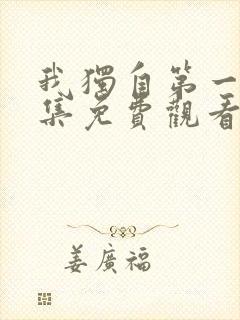 我獨自第一
集免費觀看
姜廣福